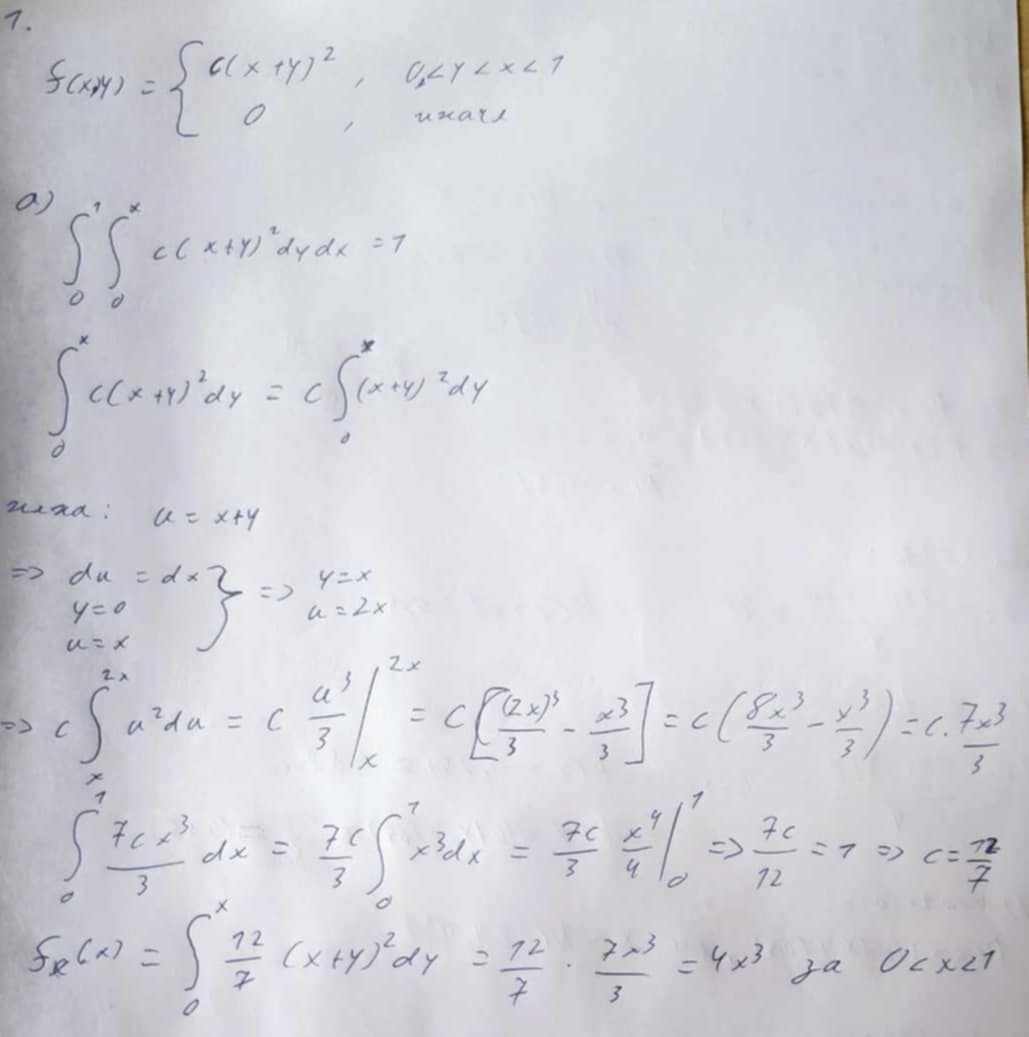 1.
f(x,y) = { c(x+y)², 0<y<x<1
0, иначе
а)
∫₀¹ ∫₀ˣ c(x+y)² dy dx = 1
∫₀ˣ c(x+y)² dy = c ∫₀ˣ (x+y)² dy
нека: u = x+y
=> du = dx } => y=x
y=0 u=2x
u=x
=> c ∫ₓ²ˣ u² du = c u³/3 |ₓ²ˣ = c [(2x)³/3 - x³/3] = c (8x³/3 - x³/3) = c. 7x³/3
∫₀¹ 7cx³/3 dx = 7c/3 ∫₀¹ x³ dx = 7c/3 x⁴/4 |₀¹ => 7c/12 = 1 => c = 12/7
fₓ(x) = ∫₀ˣ 12/7 (x+y)² dy = 12/7 . 7x³/3 = 4x³ за 0<x<1